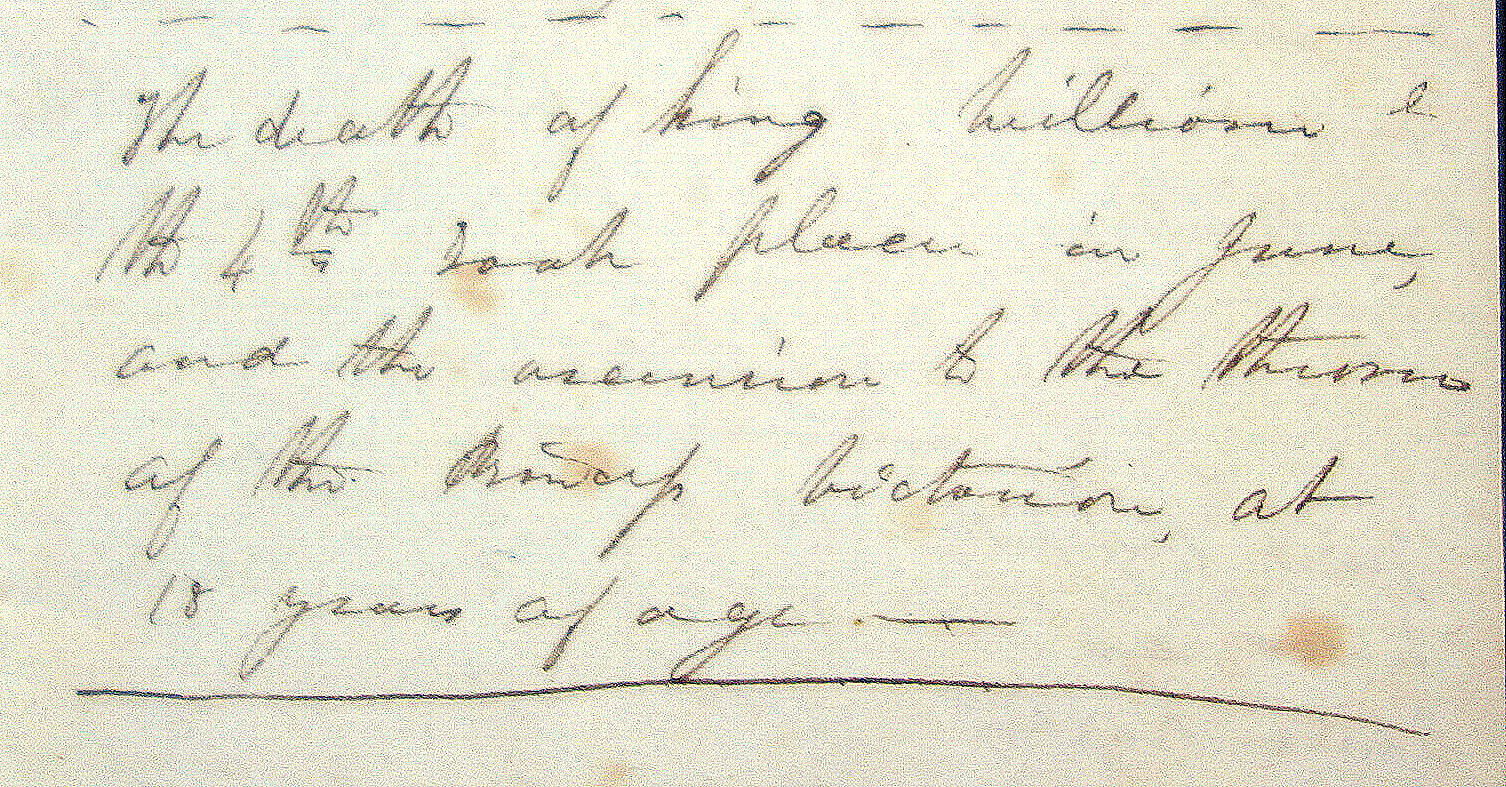 The death of king William
the 4th took place in June,
and the accession to the throne
of the Princess Victoria, at
18 years of age. —